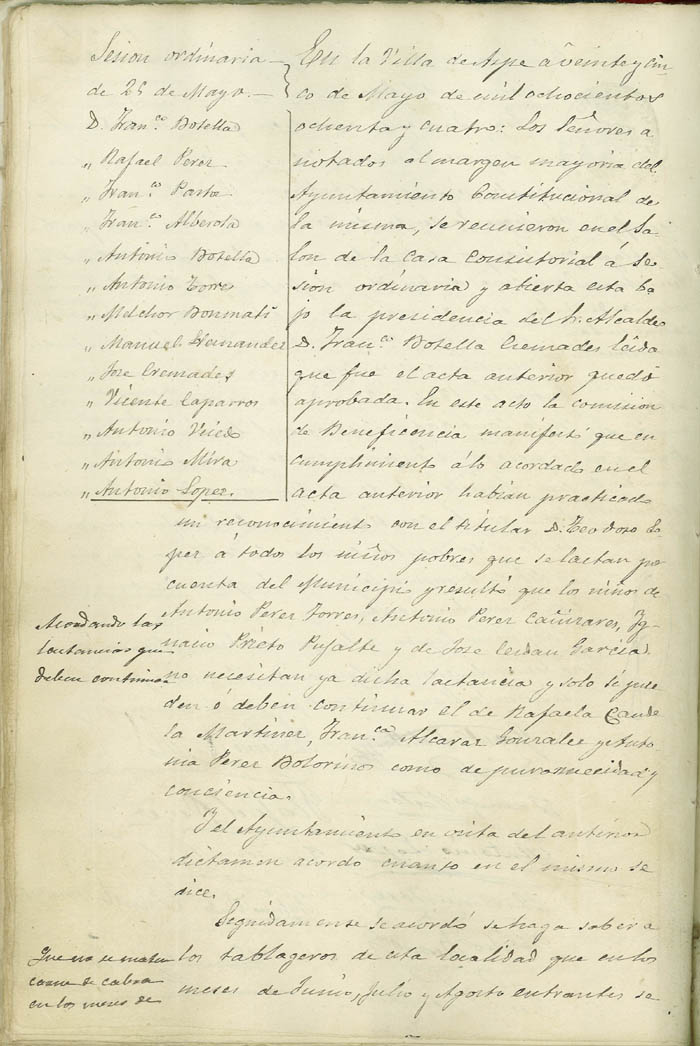 Sesion ordinaria
de 25 de Mayo.
D. Fran.co Botella
„ Rafael Perez
„ Fran.co Pastor
„ Fran.co Alberola
„ Antonio Botella
„ Antonio Torres
„ Melchor Bonmati
„ Manuel Hernandez
„ Jose Cremades
„ Vicente Caparros
„ Antonio
„ Antonio Mira
„ Antonio Lopez.
En la Villa de Aspe á veinte y cin-
co de Mayo de mil ochocientos
ochenta y cuatro: Los Señores a
notados al margen mayoria del
Ayuntamiento Constitucional de
la misma, se reunieron en el Sa-
lon de la Casa Consistorial á se-
sion ordinaria y abierta esta ba
jo la presidencia del Sr. Alcalde
D. Fran.co Botella Cremades leida
que fue el acta anterior quedó
aprobada. En este acto la comision
de Beneficencia manifestó que en
cumplimiento á lo acordado en el
acta anterior habian practicado
un reconocimiento con el titular D. Teodoro Lo
pez á todos los niños pobres que se lactan por
cuenta del Municipio y resultó que los niños de
Antonio Perez Torres, Antonio Perez Cañizares, Ig-
nacio Prieto Pujalte y de Jose Cerdan Garcia
no necesitan ya dicha lactancia y solo si pue
den ó deben continuar el de Rafaela Cande
la Martinez, Fran.ca Alcaraz Gonzalez y Anto-
nia Perez Bolorinos como de pura necesidad y
conciencia.
Acordando las
lactancias que
deben continuar
Y el Ayuntamiento en vista del anterior
dictamen acordo cuanto en el mismo se
dice.
Seguidamente se acordó se haga saber a
los tablageros de esta localidad que en los
meses de Junio, Julio y Agosto entrantes se
Que no se mate
carne de cabra
en los meses de